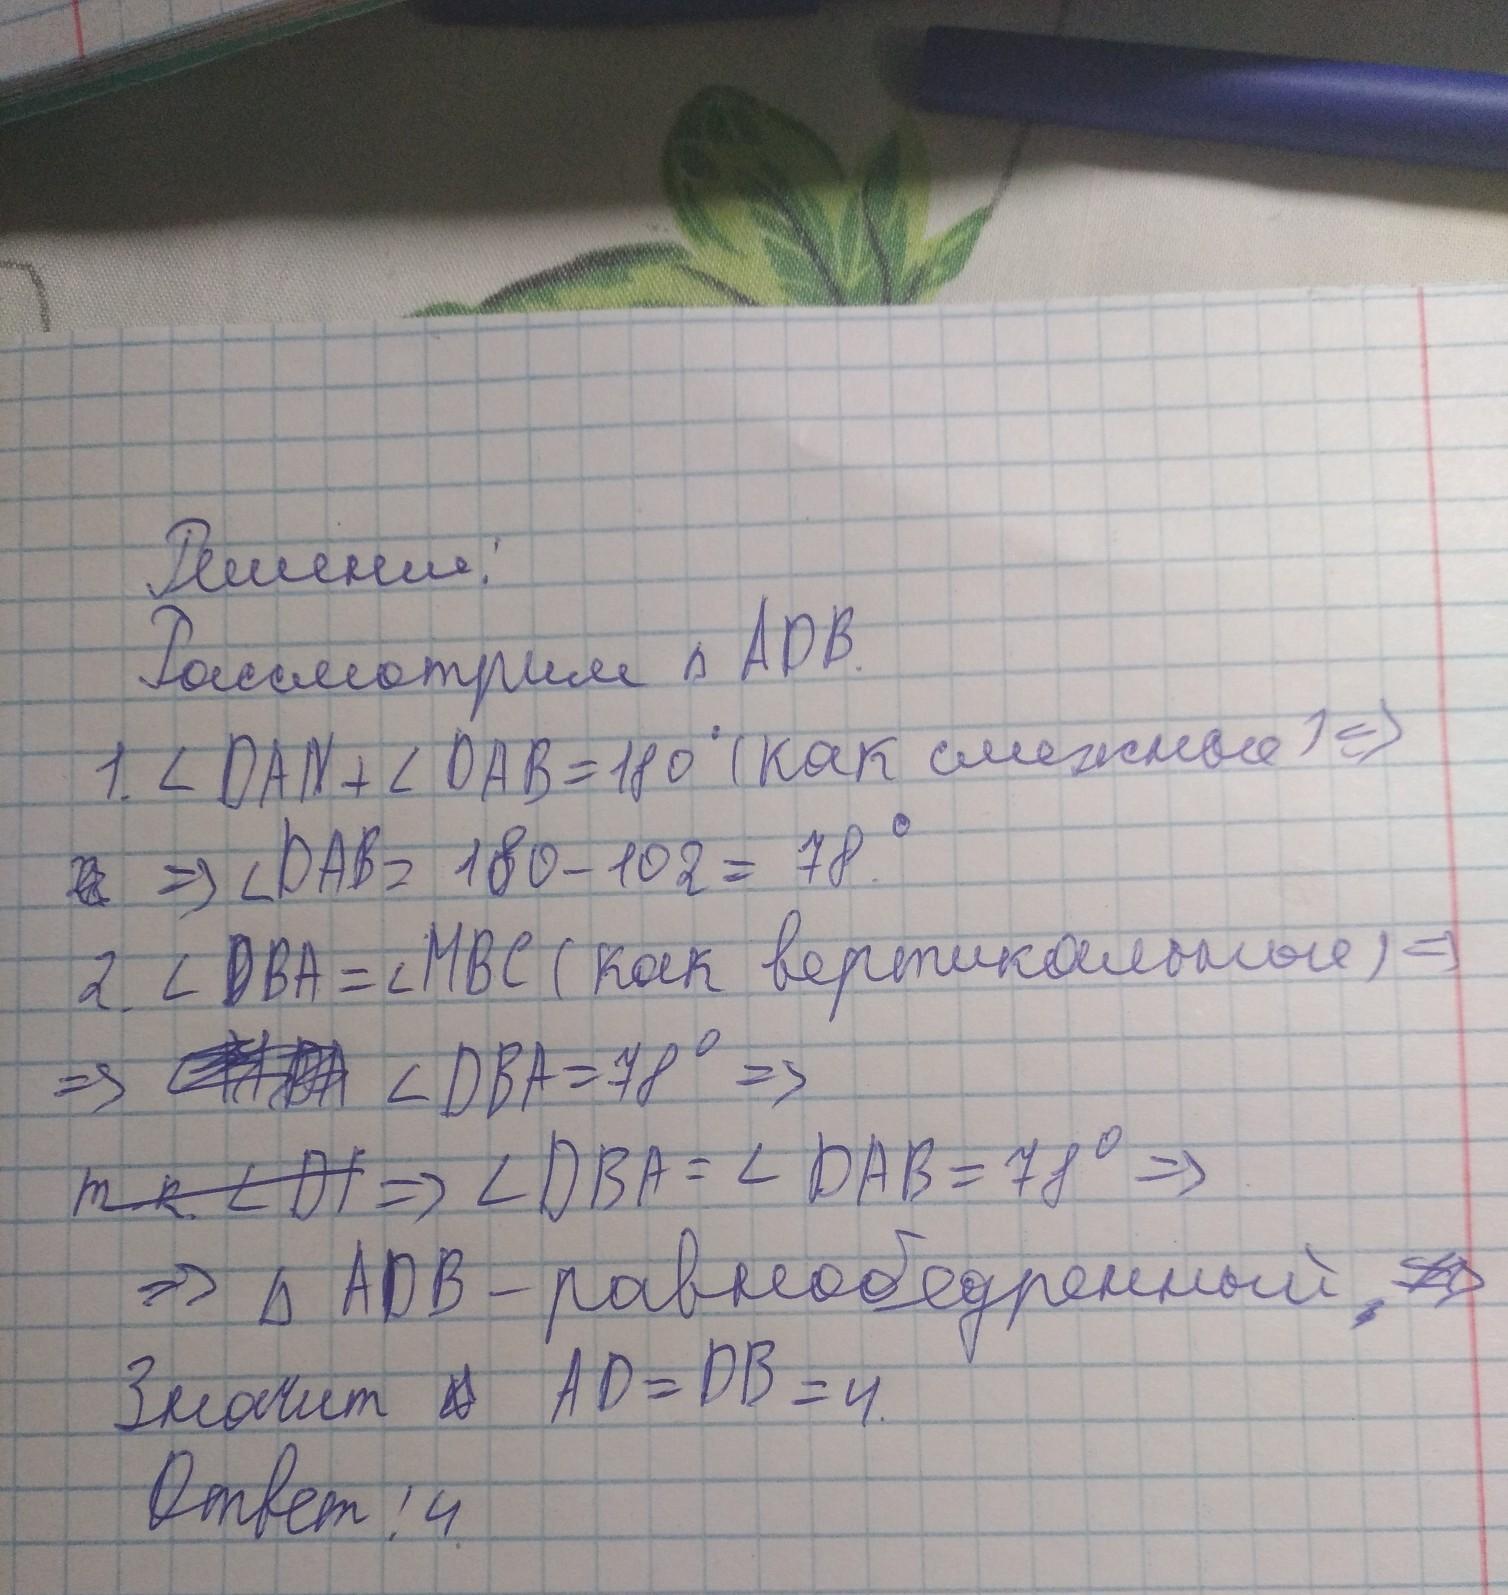 Решение:
Рассмотрим △ ADB.
1. ∠DAN + ∠DAB = 180° (как смежные) =>
=> ∠DAB = 180 - 102 = 78°.
2. ∠DBA = ∠MBC (как вертикальные) =>
=> ∠DBA = 78° =>
т.к. ∠DA => ∠DBA = ∠DAB = 78° =>
=> △ ADB - равнобедренный,
Значит AD = DB = 4.
Ответ: 4